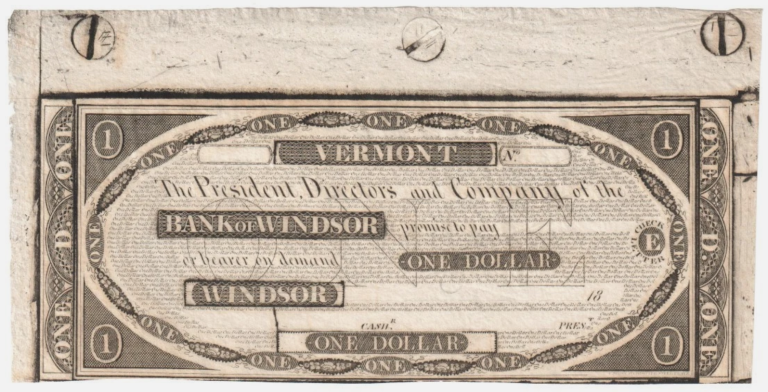 1 ONE ONE ONE ONE ONE 1
VERMONT No.
The President, Directors and Company of the
BANK OF WINDSOR promise to pay
or bearer on demand ONE DOLLAR
ONE
CHECK E LETTER
WINDSOR 18
CASHR. PREST.
ONE DOLLAR
1 ONE ONE ONE ONE ONE 1
ONE ONE
ONE D. ONE
ONE D. ONE